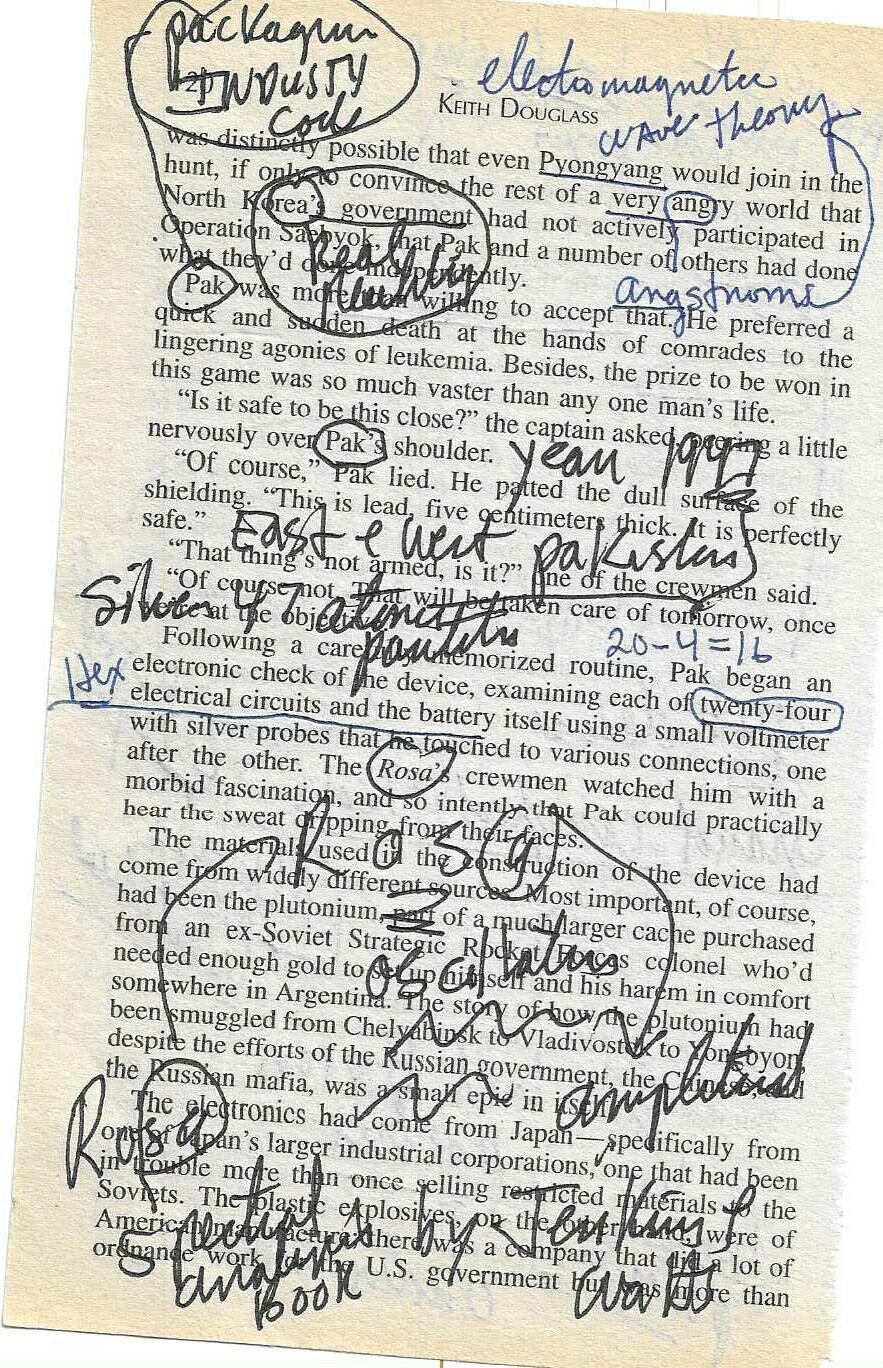 INDUSTY
code
electromagnetic
wave theory
KEITH DOUGLASS
was distinctly possible that even Pyongyang would join in the
hunt, if only to convince the rest of a very angry world that
North Korea's government had not actively participated in
Operation Saebyok, that Pak and a number of others had done
what they'd done independently.
Real
angstroms
Pak was more than willing to accept that. He preferred a
quick and sudden death at the hands of comrades to the
lingering agonies of leukemia. Besides, the prize to be won in
this game was so much vaster than any one man's life.
"Is it safe to be this close?" the captain asked, peering a little
nervously over Pak's shoulder.
year 1947
"Of course," Pak lied. He patted the dull surface of the
shielding. "This is lead, five centimeters thick. It is perfectly
safe."
East e west pakistan
"That thing's not armed, is it?" one of the crewmen said.
"Of course not. That will be taken care of tomorrow, once
we're at the objective."
Silver 47 atomic
20-4=16
Following a carefully memorized routine, Pak began an
Hex
electronic check of the device, examining each of twenty-four
electrical circuits and the battery itself using a small voltmeter
with silver probes that he touched to various connections, one
after the other. The Rosa's crewmen watched him with a
morbid fascination, and so intently that Pak could practically
hear the sweat dripping from their faces.
Rosa
The materials used in the construction of the device had
come from widely different sources. Most important, of course,
had been the plutonium, part of a much larger cache purchased
from an ex-Soviet Strategic Rocket Forces colonel who'd
needed enough gold to set up himself and his harem in comfort
oscillations
somewhere in Argentina. The story of how the plutonium had
been smuggled from Chelyabinsk to Vladivostok to Yongbyon,
despite the efforts of the Russian government, the Chinese, and
the Russian mafia, was a small epic in itself.
Rosa
The electronics had come from Japan—specifically from
one of Japan's larger industrial corporations, one that had been
in trouble more than once selling restricted materials to the
Soviets. The plastic explosives, on the other hand, were of
American manufacture; there was a company that did a lot of
ordnance work for the U.S. government but was more than
Spectral
analysis by Jenkins &
Book
Watts